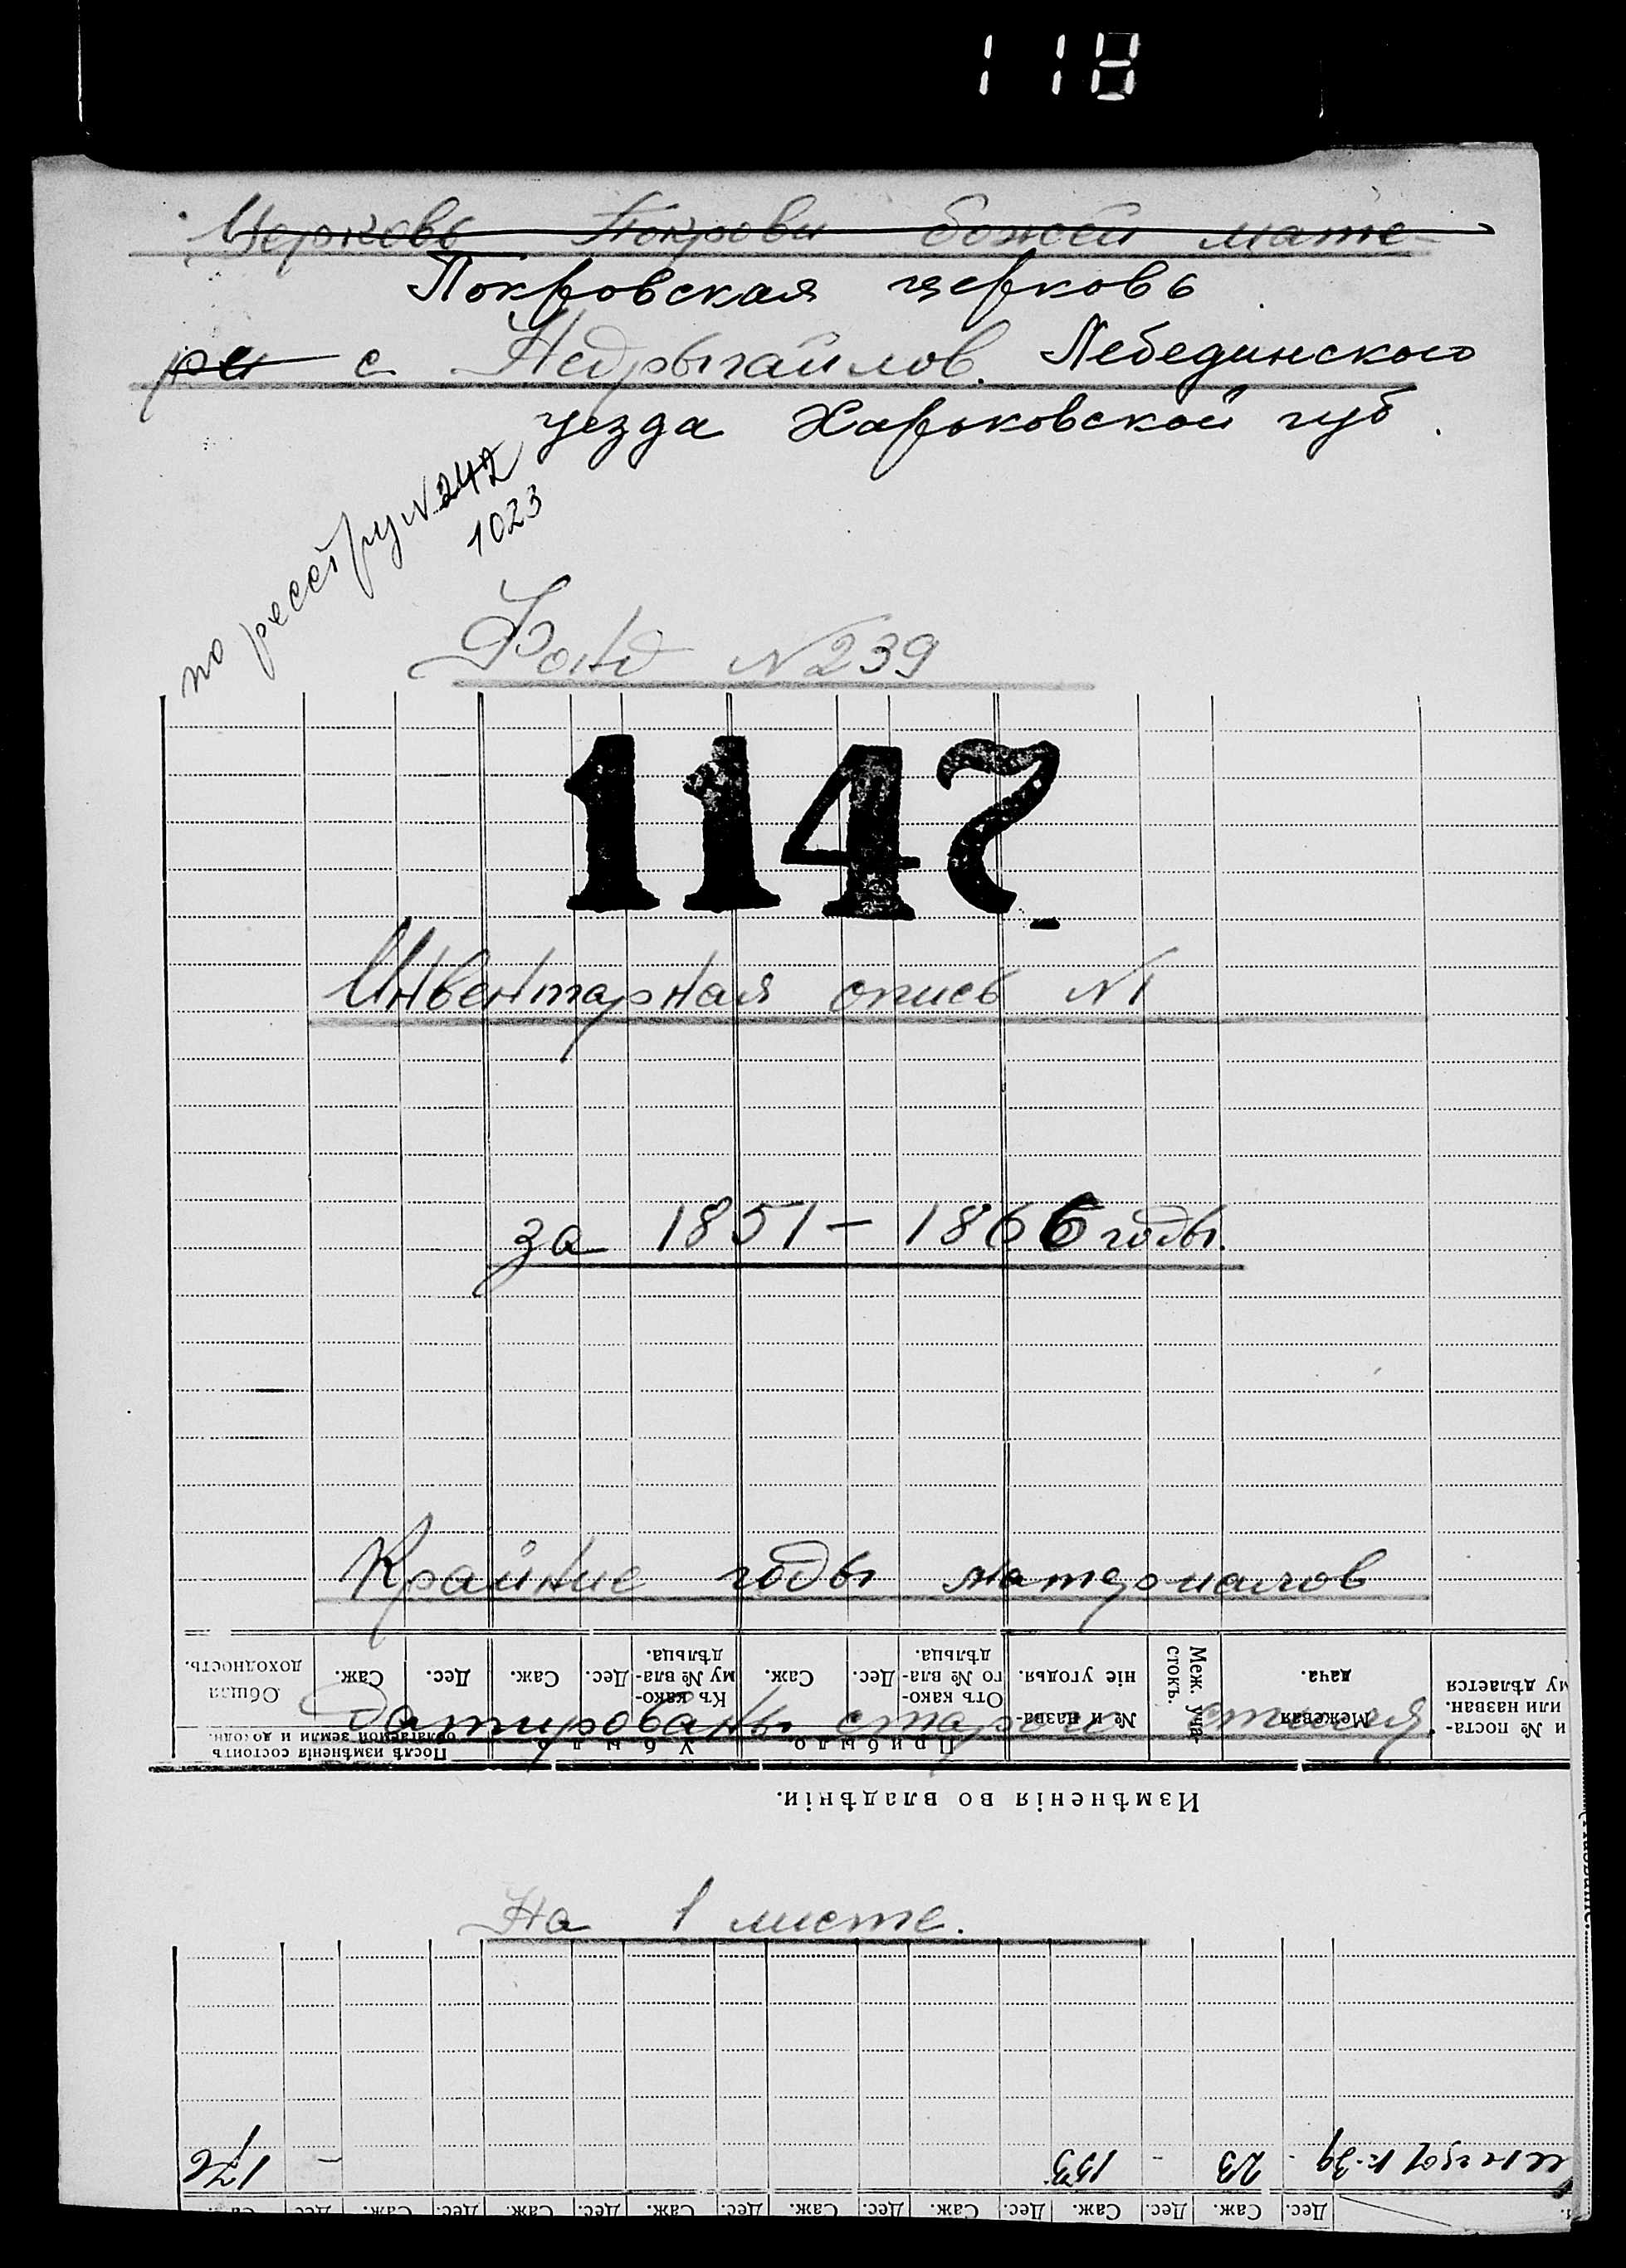 118
Церковь Покрови божей мате-
Покровская церковь
ри с Недрыгайлов. Лебединского
уезда Харьковской губ.
по реестру N 242
1023
Фонд N 239
1147
Инвентарная опись N1
за 1851 - 1866 годы.
Крайние годы материалов
датированы старого стиля.
Общая доходность.
Саж.
Дес.
Саж.
Дес.
Къ како-му № вла-дѣльца.
Саж.
Дес.
Отъ како-го № вла-дѣльца.
№ и назва-ніе угодья.
Меж. уча-стокъ.
Межевая дача.
и № поста-
или назван.
му дѣлается
Послѣ измѣненія состоитъ
облагаемой земли и доходн.
Убыло
Прибыло
Измѣненія во владѣніи.
На 1 листе.
153
23
Саж. Дес. Саж. Дес. Саж. Дес. Саж. Дес. Саж. Дес. Саж. Дес. Саж. Дес.